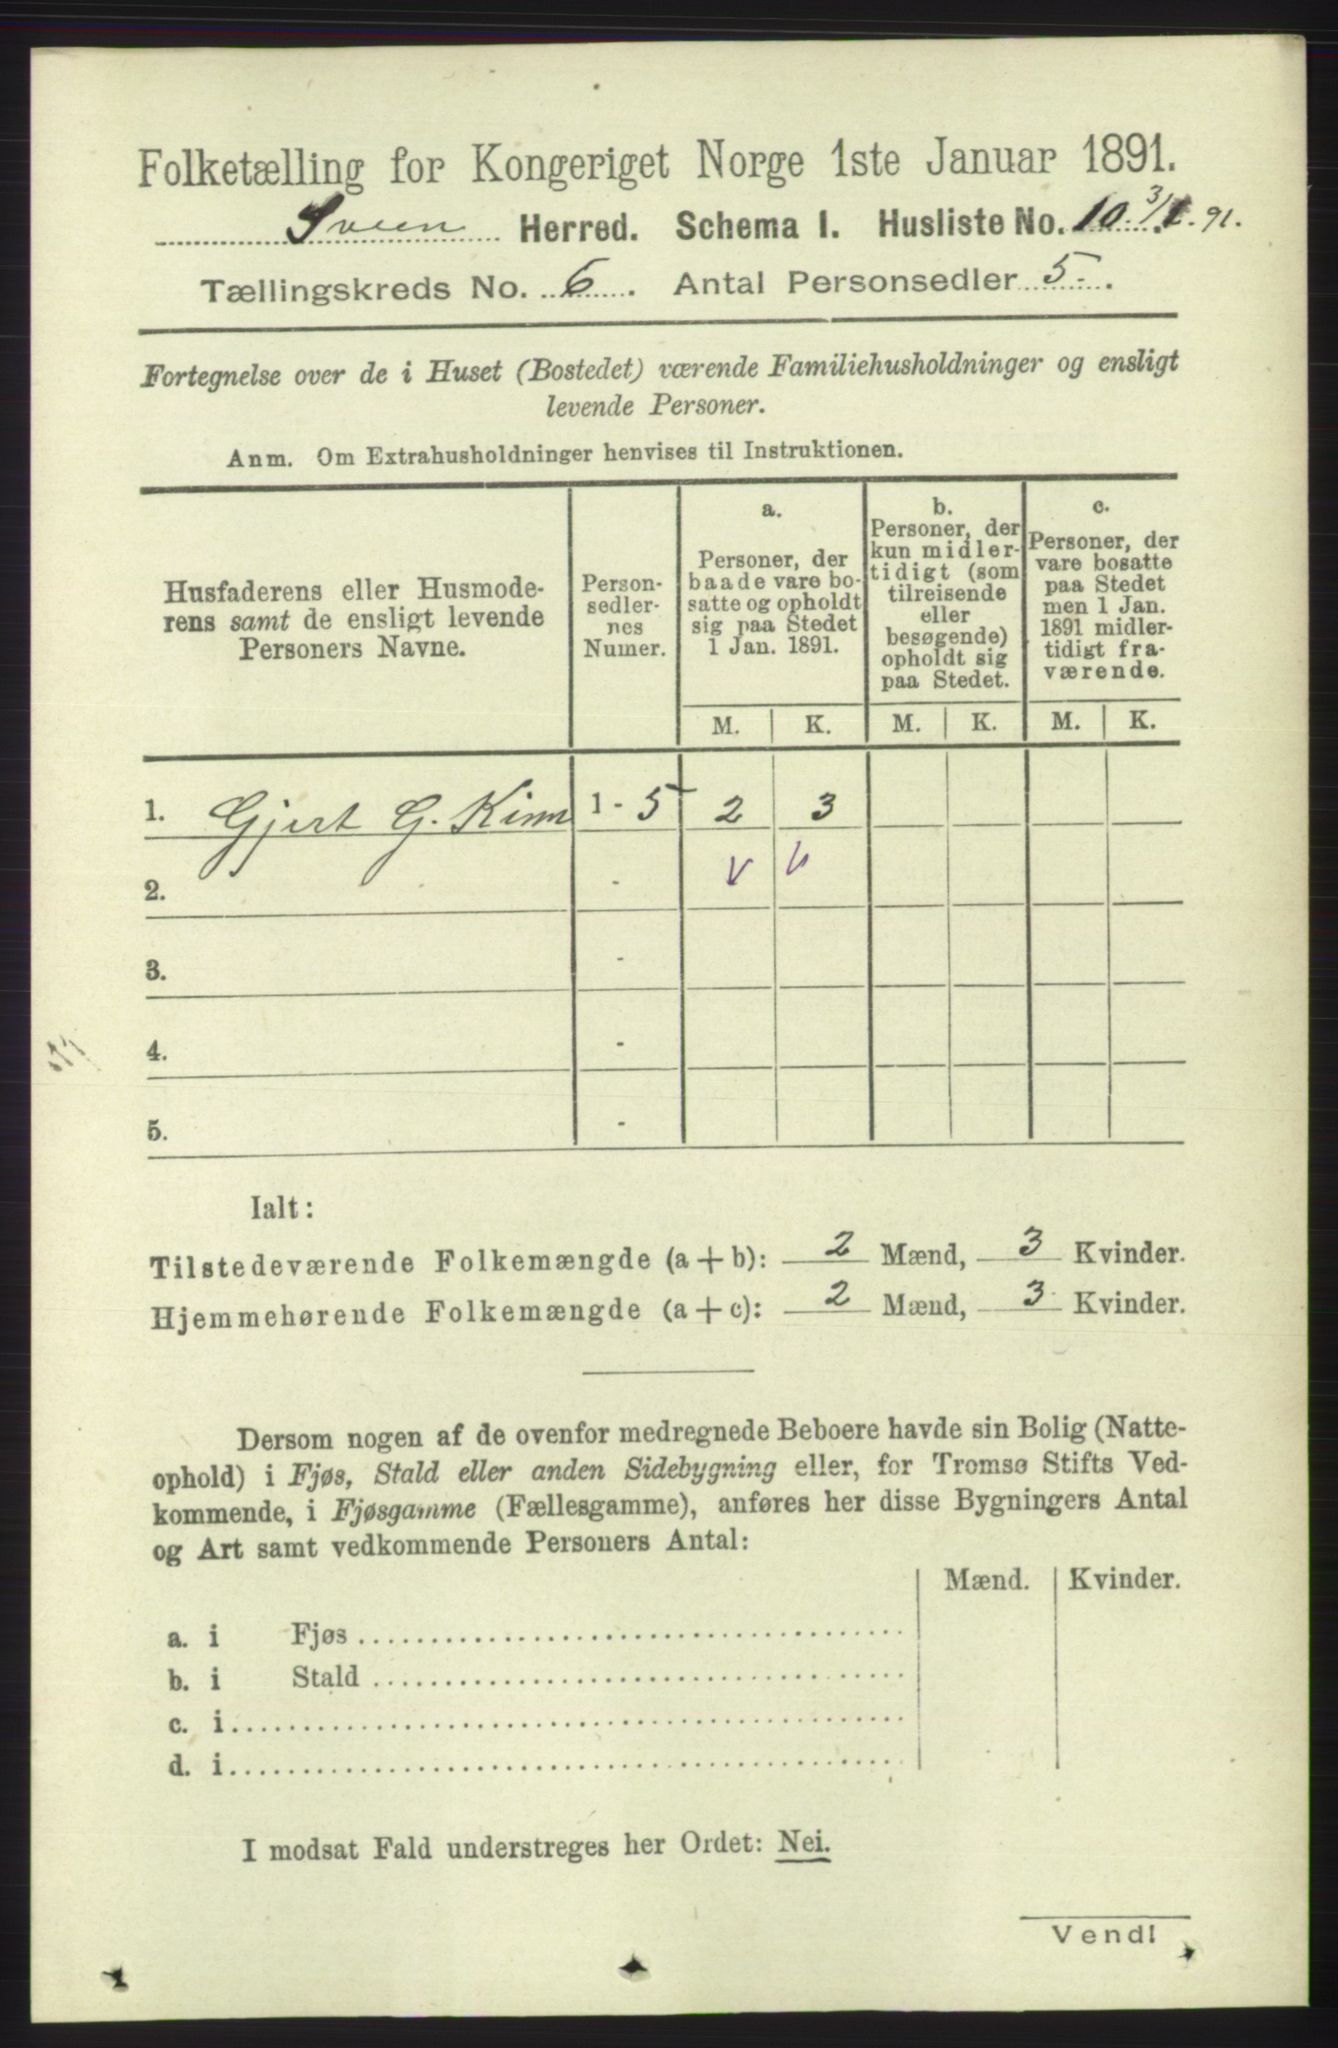 Folketælling for Kongeriget Norge 1ste Januar 1891.
Sveen Herred. Schema I. Husliste No. 10. 3/1. 91.
Tællingskreds No. 6. Antal Personsedler 5.
Fortegnelse over de i Huset (Bostedet) værende Familiehusholdninger og ensligt
levende Personer.
Anm. Om Extrahusholdninger henvises til Instruktionen.
Husfaderens eller Husmode-
rens samt de ensligt levende
Personers Navne.
Person-
sedler-
nes
Numer.
a.
Personer, der
baade vare bo-
satte og opholdt
sig paa Stedet
1 Jan. 1891.
b.
Personer, der
kun midler-
tidigt (som
tilreisende
eller
besøgende)
opholdt sig
paa Stedet.
c.
Personer, der
vare bosatte
paa Stedet
men 1 Jan.
1891 midler-
tidigt fra-
værende.
M. K. M. K. M. K.
1. Gjert G. Kinn 1 - 5 2 3
2. -
3. -
4. -
5. -
Ialt:
Tilstedeværende Folkemængde (a + b): 2 Mænd, 3 Kvinder.
Hjemmehørende Folkemængde (a + c): 2 Mænd, 3 Kvinder.
Dersom nogen af de ovenfor medregnede Beboere havde sin Bolig (Natte-
ophold) i Fjøs, Stald eller anden Sidebygning eller, for Tromsø Stifts Ved-
kommende, i Fjøsgamme (Fællesgamme), anføres her disse Bygningers Antal
og Art samt vedkommende Personers Antal:
Mænd. Kvinder.
a. i Fjøs
b. i Stald
c. i
d. i
I modsat Fald understreges her Ordet: Nei.
Vend!